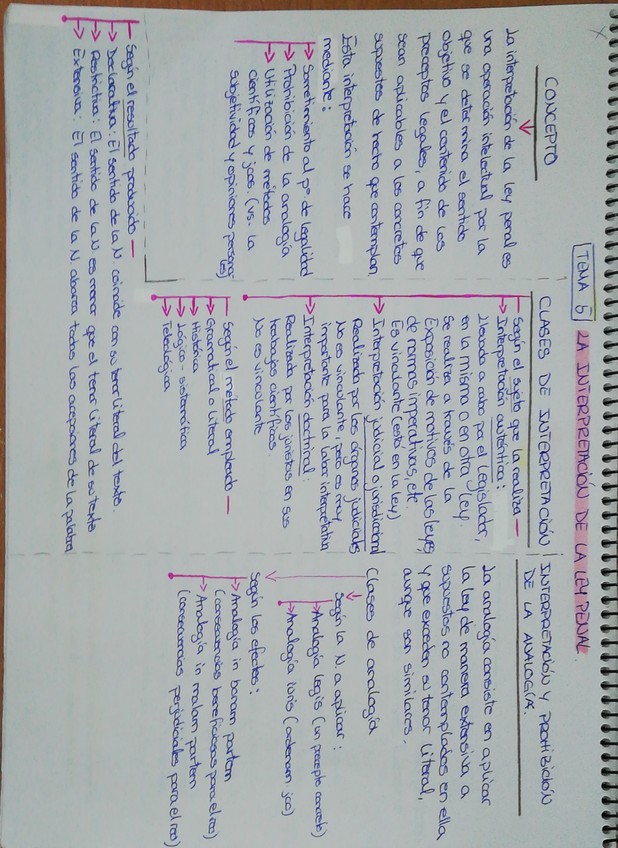 TEMA 5 LA INTERPRETACIÓN DE LA LEY PENAL.
CONCEPTO
La interpretación de la ley penal es
una operación intelectual por la
que se determina el sentido
objetivo y el contenido de los
preceptos legales, a fin de que
sean aplicables a los concretos
supuestos de hecho que contemplan
Esta interpretación se hace
mediante:
Sometimiento al pº de legalidad
Prohibición de la analogía
Utilización de métodos
científicos y jcos. (vs. la
subjetividad y opiniones persona-
les)
CLASES DE INTERPRETACIÓN
Según el sujeto que la realiza
Interpretación auténtica:
Llevada a cabo por el legislador,
en la misma o en otra ley.
Se realiza a través de la
Exposición de motivos de las leyes,
de normas imperativas, etc.
Es vinculante (está en la ley)
Interpretación judicial o jurisdiccional
Realizada por los órganos judiciales
No es vinculante, pero es muy
importante para la labor interpretativa
Interpretación doctrinal:
Realizada por los juristas en sus
trabajos científicos.
No es vinculante
Según el método empleado
Gramatical o literal
Histórica
Lógico-sistemática
Teleológica
Según el resultado producido
Declarativa: El sentido de la N. coincide con su tenor literal del texto.
Restrictiva: El sentido de la N es menor que el tenor literal de su texto
Extensiva: El sentido de la N abarca todas las acepciones de la palabra
INTERPRETACIÓN Y PROHIBICIÓN
DE LA ANALOGÍA.
La analogía consiste en aplicar
la ley de manera extensiva a
supuestos no contemplados en ella
y que exceden su tenor literal,
aunque son similares.
Clases de analogía
Según la N a aplicar:
Analogía legis (un precepto concreto)
Analogía iuris (ordenam. jco)
Según los efectos:
Analogía in bonam partem
(consecuencias beneficiosas para el reo)
Analogía in malam partem
(consecuencias perjudiciales para el reo)